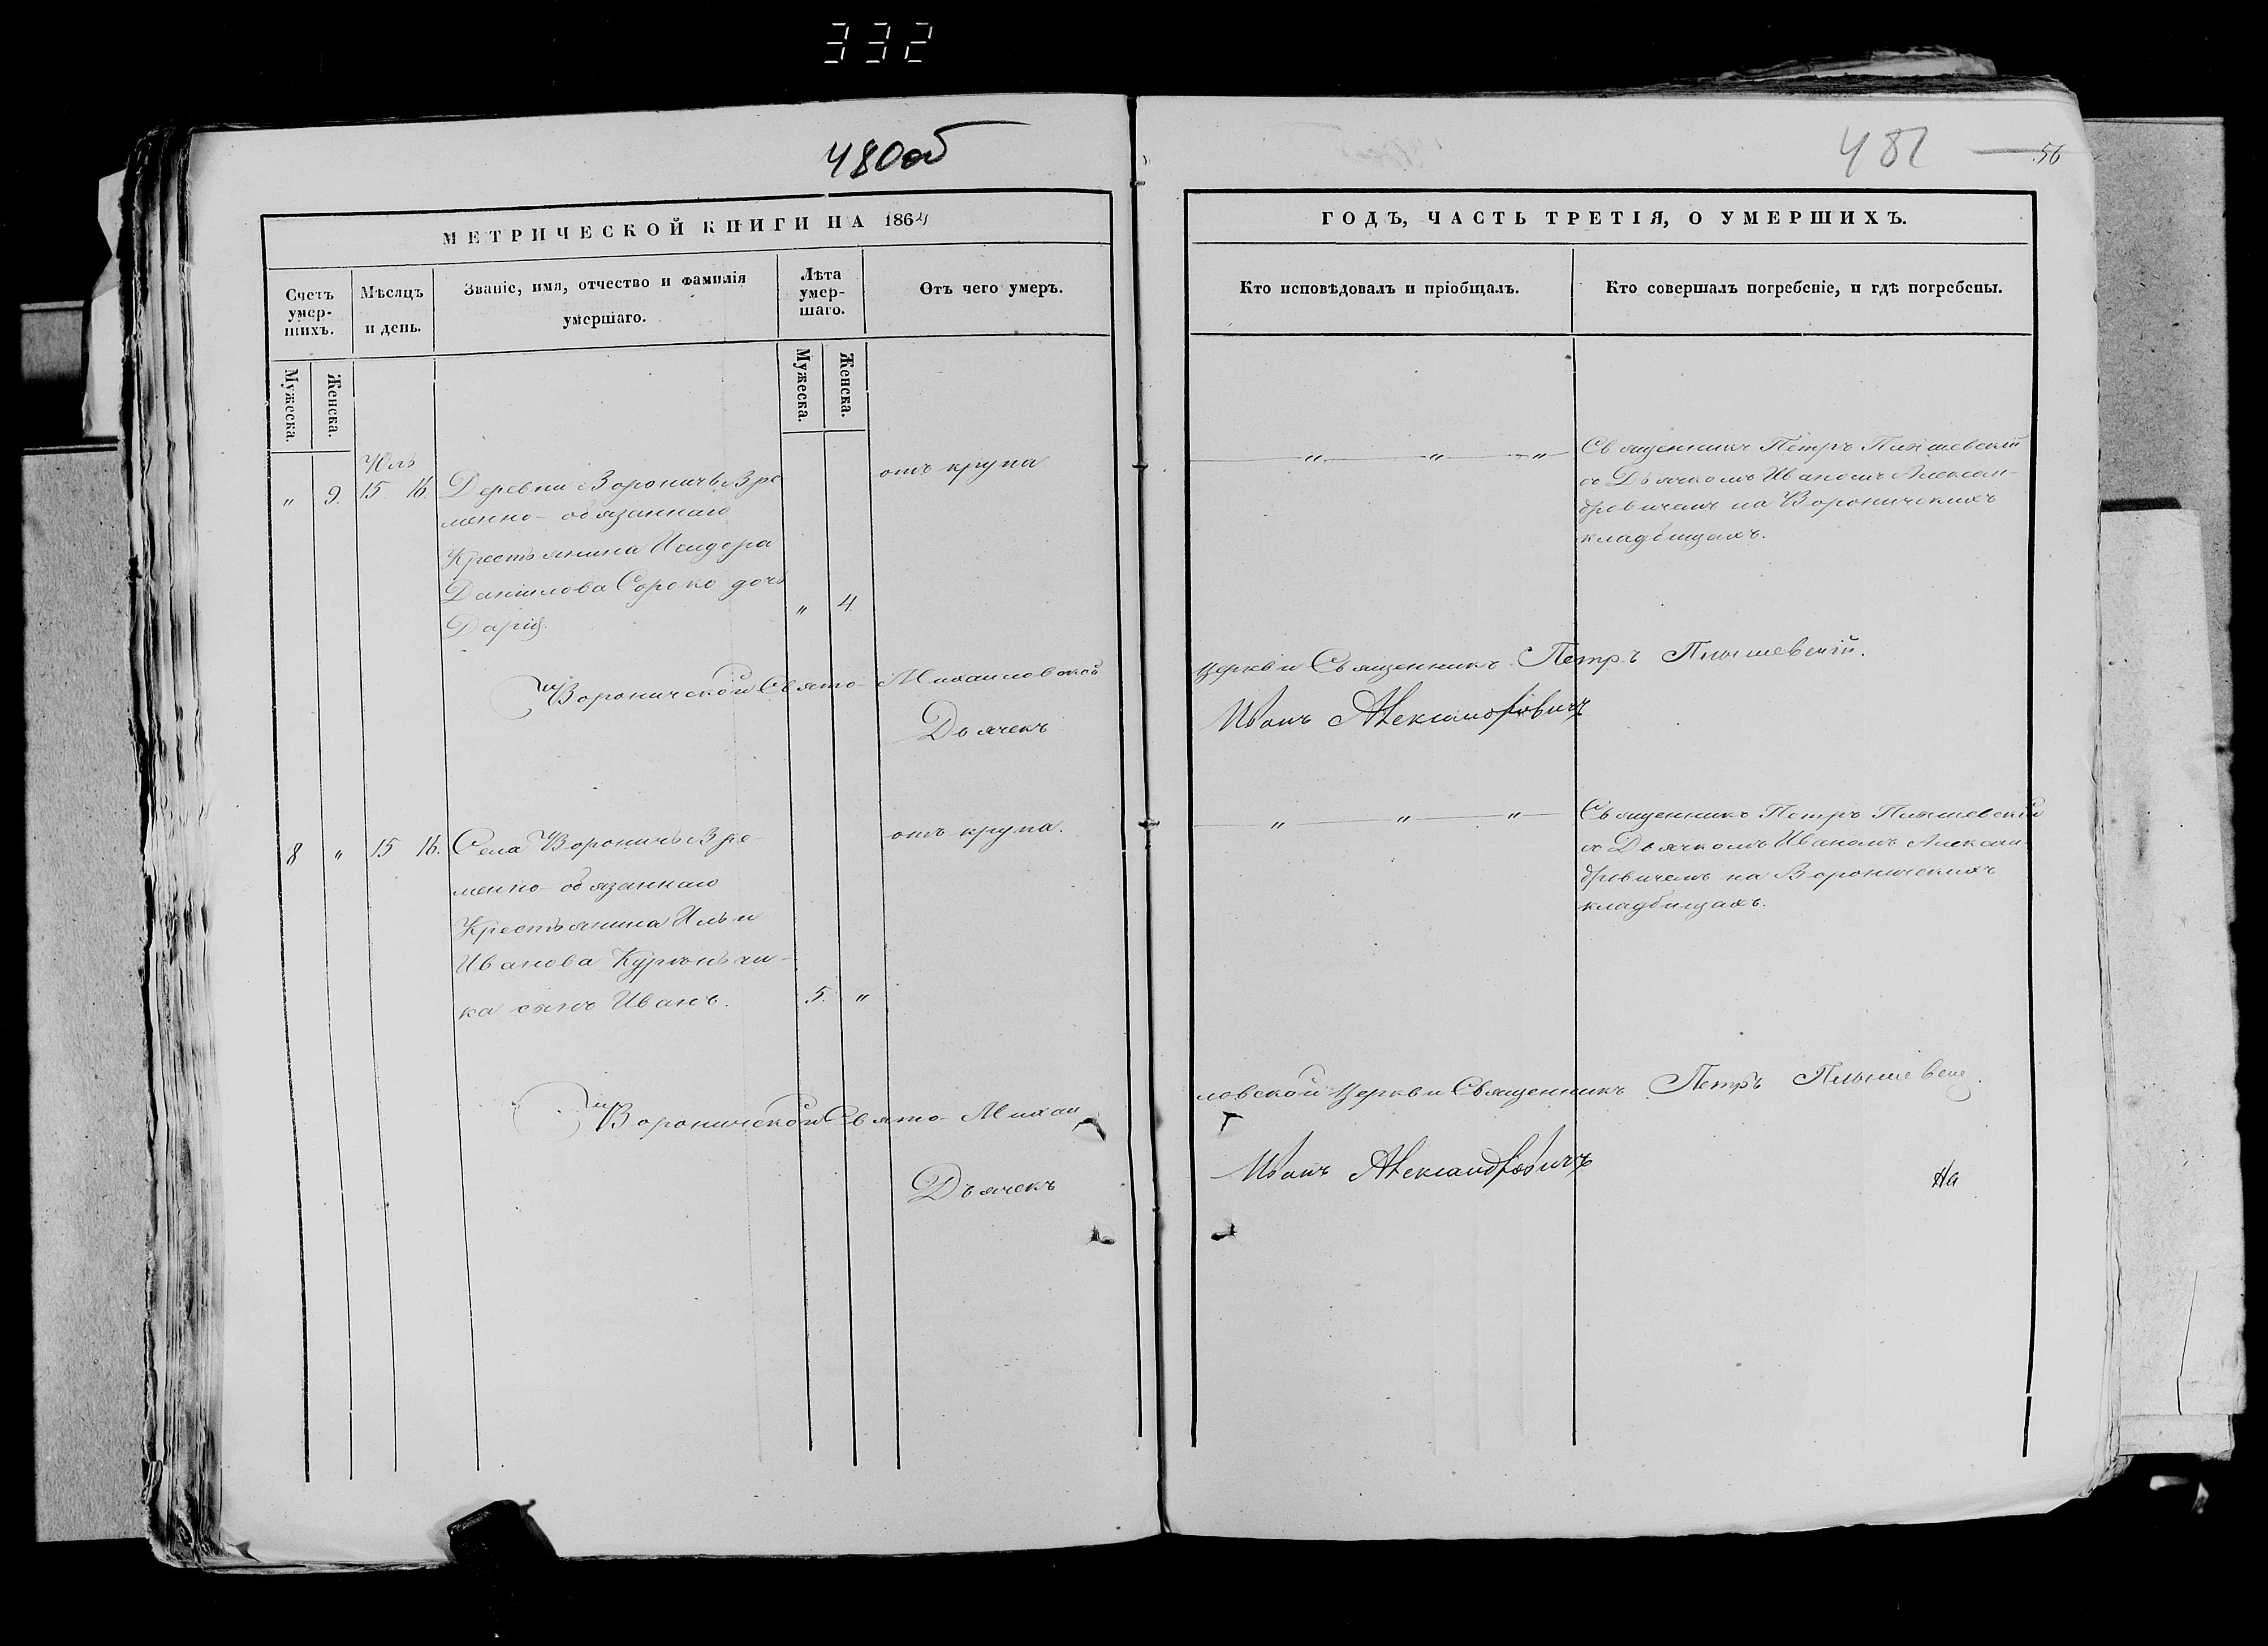 332
480об
МЕТРИЧЕСКОЙ КНИГИ НА 1864
Счетъ умер-шихъ.
Мѣсяцъ и день.
Званіе, имя, отчество и фамилія умершаго.
Лѣта умер-шаго.
Отъ чего умеръ.
Мужеска.
Женска.
Мужеска.
Женска.
Юль
" 9. 15 16
Деревни Вороничъ Вре
менно-обязаннаго
Крестьянина Исидора
Данилова Сороко дочь
Дарія. " 4.
отъ крупа
Вороничской Свято-Михаиловской
Дьячекъ
8 " 15 16.
Села Вороничъ Вре-
менно обязаннаго
Крестьянина Ильи
Иванова
ка сынъ Иванъ. 5. "
отъ крупа.
Вороничской Свято-Михаи
Дьячекъ
481
56
ГОДЪ, ЧАСТЬ ТРЕТІЯ, О УМЕРШИХЪ.
Кто исповѣдовалъ и пріобщалъ.
Кто совершалъ погребеніе, и гдѣ погребены.
" " "
Священникъ Петръ
съ Дьячкомъ Иваномъ Алексан-
дровичемъ на Вороничскихъ
кладбищахъ.
церкви Священникъ Петръ
Иванъ Александровичъ
" " "
Священникъ Петръ
съ Дьячкомъ Иваномъ Алексан
дровичемъ на Вороничскихъ
кладбищахъ.
ловской церкви Священникъ Петръ
Иванъ Александровичъ
На